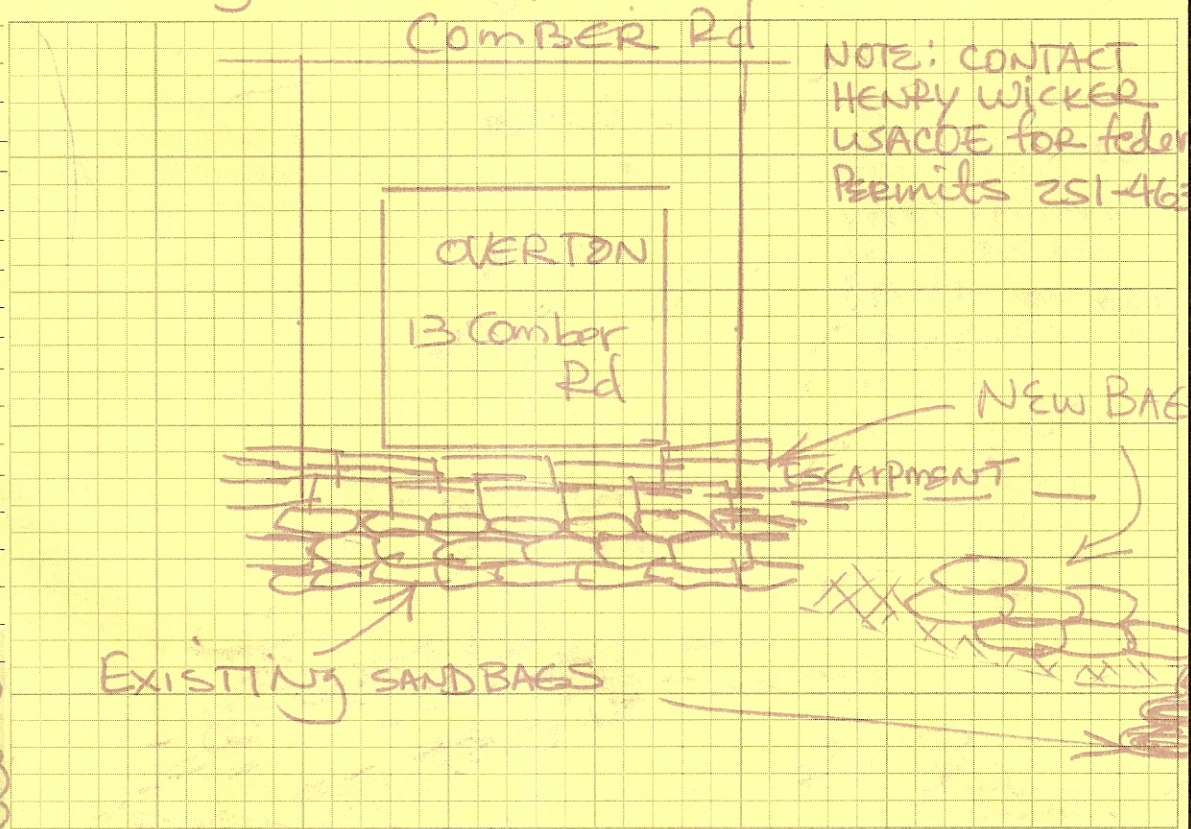 ComBER Rd
NOTE: CONTACT
HENRY WICKER
USACOE foR feder
PERmits 251-463
OVERTON
13 Comber
Rd
NEW BAG
ESCARPMENT
EXISTING SANDBAGS